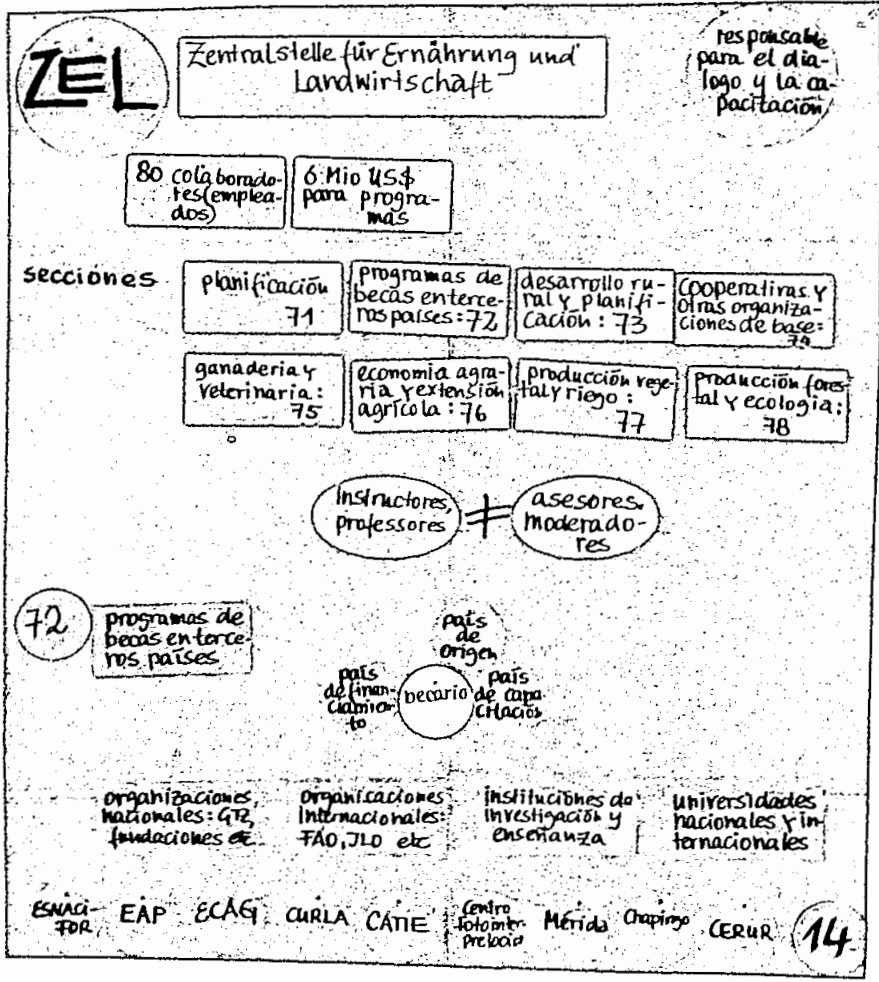 ZEL
Zentralstelle für Ernährung und
Landwirtschaft
responsable
para el dia-
logo y la ca-
pacitación
80 colaborado-
res (emplea-
dos)
6 Mio US$
para progra-
más
secciónes
planificación
71
programas de
becas en terce-
ros países: 72
desarrollo ru-
ral y planifi-
cación: 73
cooperativas y
otras organiza-
ciones de base:
74
ganaderia y
veterinaria:
75
economia agra-
ria y extensión
agrícola: 76
producción vege-
tal y riego:
77
producción fores-
tal y ecologia:
78
Instructores,
professores
≠
asesores,
moderado-
res
72
programas de
becas en terce-
ros países
país
de
origen
país
de finan-
ciamien-
to
becario
país
de capa
citación
organizaciones
nacionales: GTZ,
fundaciones etc.
organisaciones
internacionales:
FAO, JLO etc
instituciónes de
investigación y
enseñanza
universidades
nacionales y in-
ternacionales
ESNACI-
FOR
EAP
ECAG
CURLA
CATIE
Centro
Mérida
Chapingo
CERUR
14